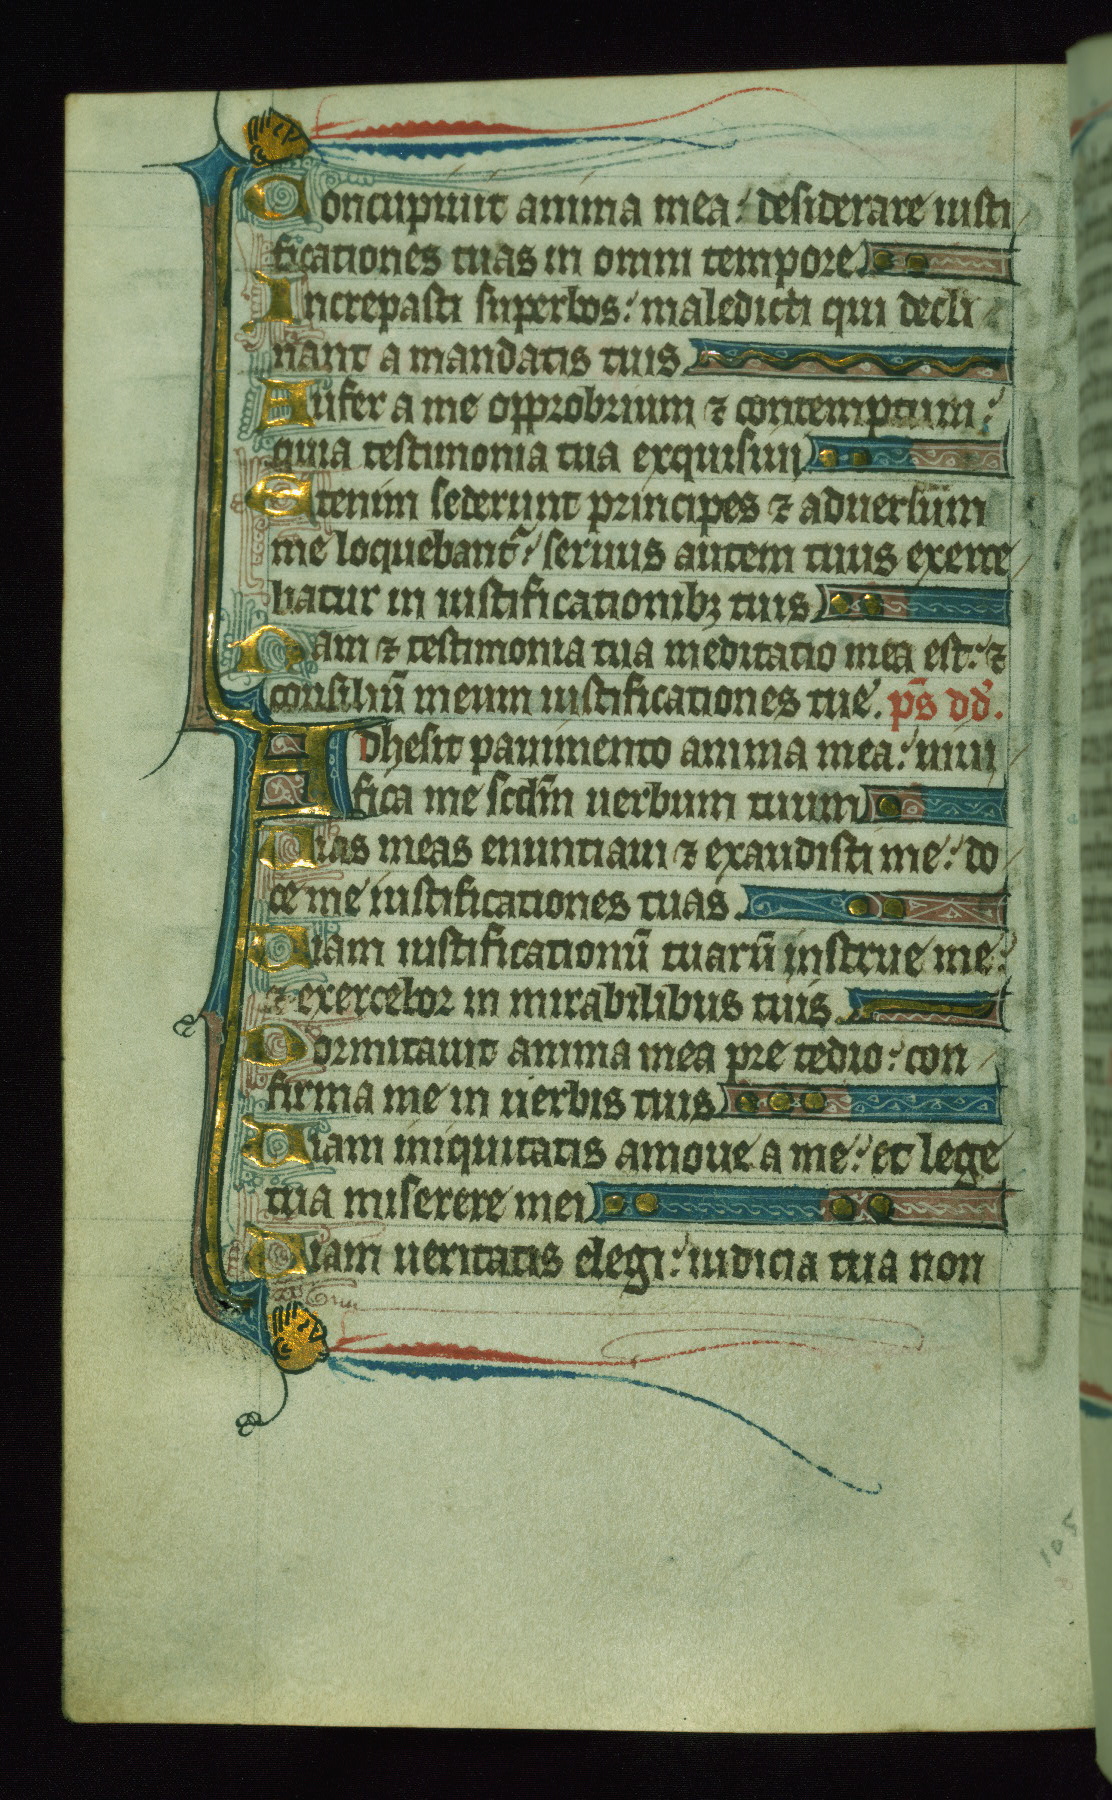 Concupiuit anima mea: desiderare iusti
ficationes tuas in omni tempore
Increpasti superbos: maledicti qui decli
nant a mandatis tuis
Aufer a me opprobrium ⁊ contemptum:
quia testimonia tua exquisiui
Etenim sederunt principes ⁊ aduersum
me loquebantᷣ: seruus autem tuus exerce
batur in iustificationibꝫ tuis
Nam ⁊ testimonia tua meditatio mea est: ⁊
consiliū meum iustificationes tue. ps̄ dd̓.
Adhesit pauimento anima mea: uiui
fica me scd̄m uerbum tuum
Uias meas enuntiaui ⁊ exaudisti me: do
ce me iustificationes tuas
Uiam iustificationū tuarū instrue me:
⁊ exercebor in mirabilibus tuis
Dormitauit anima mea pre tedio: con
firma me in uerbis tuis
Uiam iniquitatis amoue a me: et lege
tua miserere mei
Uiam ueritatis elegi: iudicia tua non
105